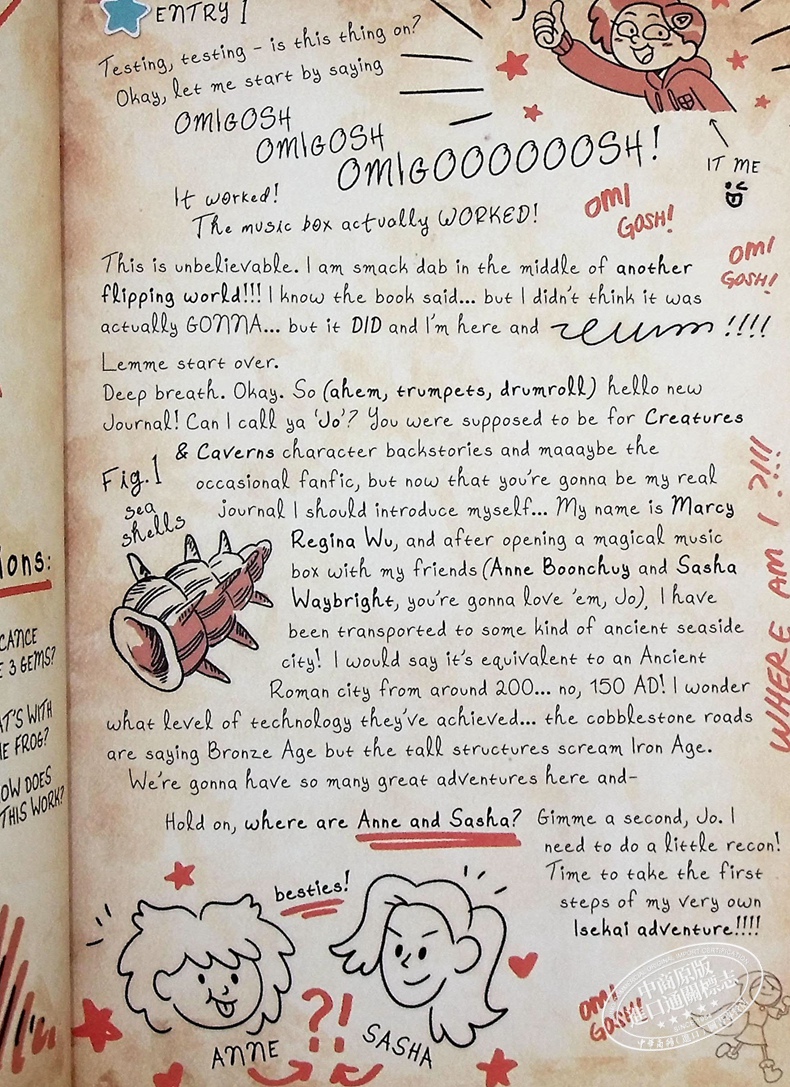 ENTRY 1
Testing, testing – is this thing on?
Okay, let me start by saying
OMIGOSH
OMIGOSH
OMIGOOOOOOSH!
IT ME
It worked!
The music box actually WORKED!
OMI
GOSH!
OMI
GOSH!
This is unbelievable. I am smack dab in the middle of another
flipping world!!! I know the book said... but I didn't think it was
actually GONNA... but it DID and I'm here and !!!!
Lemme start over.
Deep breath. Okay. So (ahem, trumpets, drumroll) hello new
Journal! Can I call ya 'Jo'? You were supposed to be for Creatures
& Caverns character backstories and maaaybe the
occasional fanfic, but now that you're gonna be my real
journal I should introduce myself... My name is Marcy
Regina Wu, and after opening a magical music
box with my friends (Anne Boonchuy and Sasha
Waybright, you're gonna love 'em, Jo), I have
been transported to some kind of ancient seaside
city! I would say it's equivalent to an Ancient
Roman city from around 200... no, 150 AD! I wonder
what level of technology they've achieved... the cobblestone roads
are saying Bronze Age but the tall structures scream Iron Age.
We're gonna have so many great adventures here and-
Fig.1
sea
shells
WHERE AM I ?!!!
Hold on, where are Anne and Sasha? Gimme a second, Jo. I
need to do a little recon!
Time to take the first
steps of my very own
Isekai adventure!!!!
besties!
?!
ANNE
SASHA
OMI
GOSH!
ions:
CANCE
E 3 GEMS?
AT'S WITH
HE FROG?
OW DOES
THIS WORK?
中商原版
進口通關標志